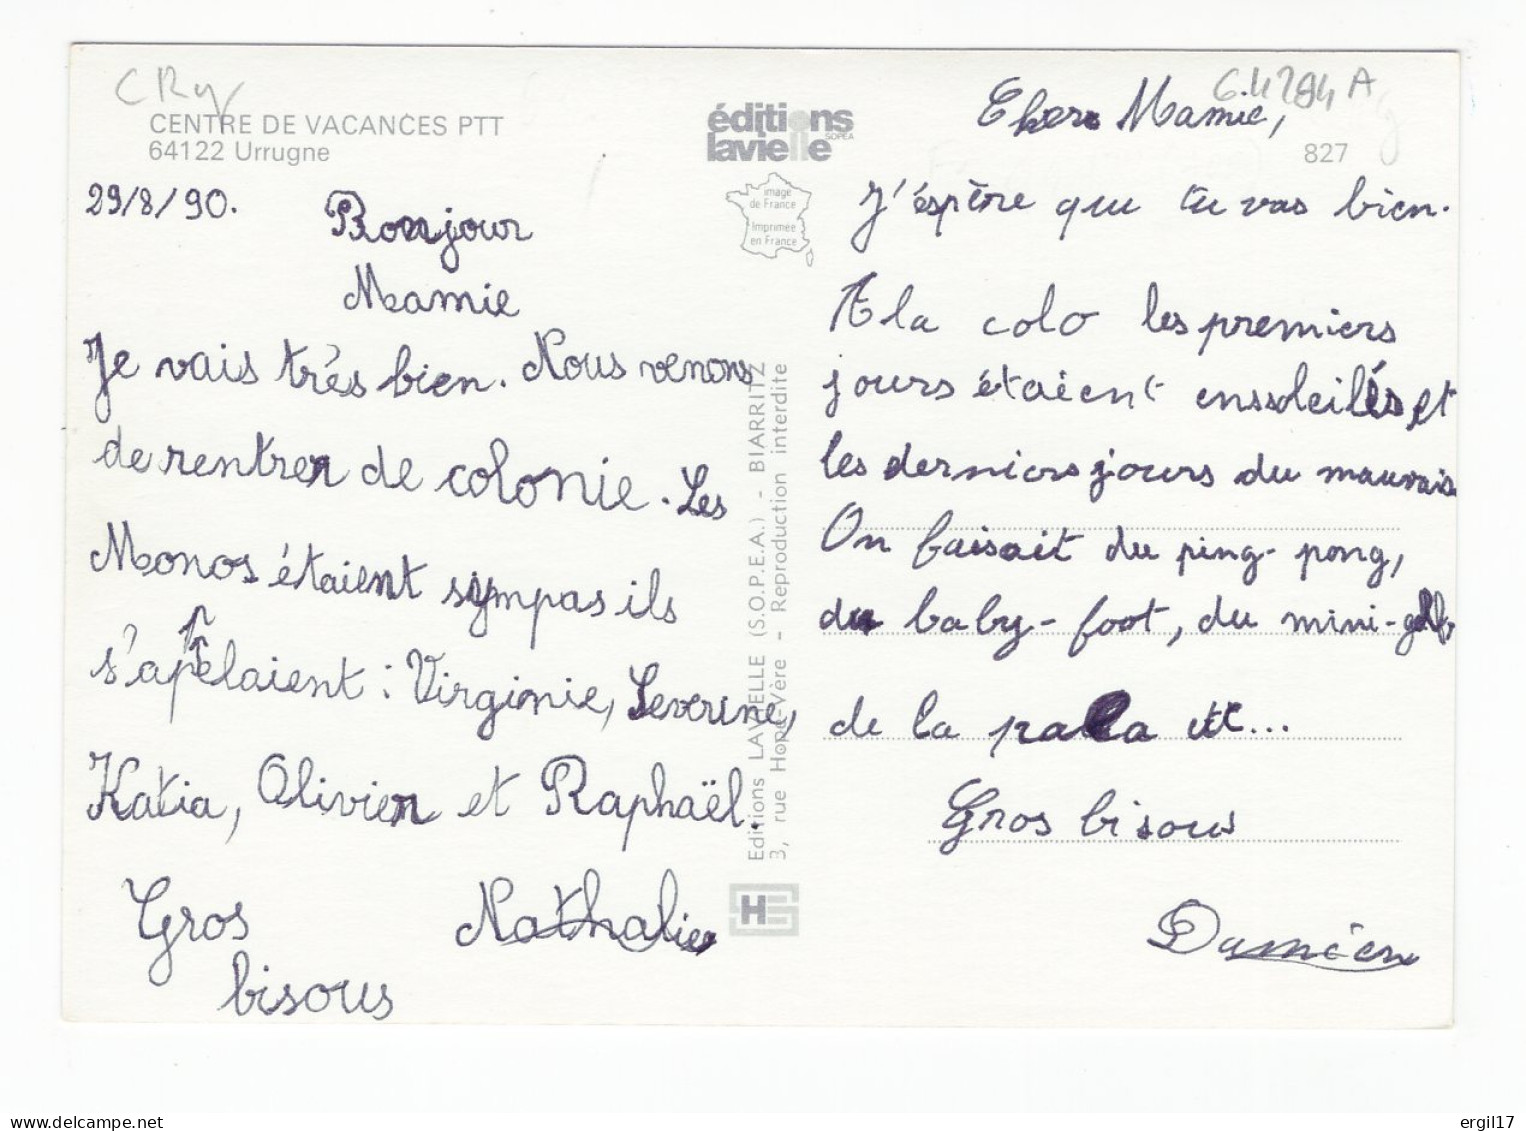 CENTRE DE VACANCES PTT
64122 Urrugne
29/8/90.
Bonjour
Mamie
Je vais très bien. Nous venons
de rentrer de colonie. Les
Monos étaient sympas ils
s'appelaient : Virginie, Severine,
Katia, Olivier et Raphaël.
Gros
bisous
Nathalie
éditions
lavielle
SOPEA
image
de France
Imprimée
en France
Editions LAVIELLE (S.O.P.E.A.) - BIARRITZ
3, rue Hope-Vère - Reproduction interdite
64294A
827
Cher Mamie,
J'éspère que tu vas bien.
A la colo les premiers
jours étaient enssoleillés et
les derniers jours du mauvais
On faisait du ping-pong,
du baby-foot, du mini-golf,
de la pala ect...
Gros bisous
Damien
ergil17